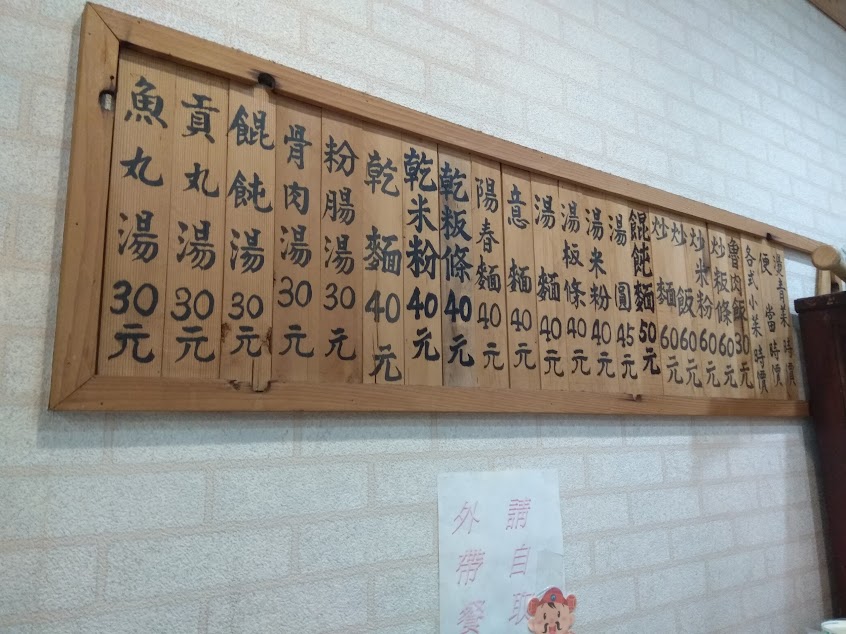 燙青菜時價
便當時價
各式小菜時價
魯肉飯30元
炒粄條60元
炒米粉60元
炒飯60元
炒麵60元
餛飩麵50元
湯圓45元
湯米粉40元
湯板條40元
湯麵40元
意麵40元
陽春麵40元
乾粄條40元
乾米粉40元
乾麵40元
粉腸湯30元
骨肉湯30元
餛飩湯30元
貢丸湯30元
魚丸湯30元
請自取
外帶餐